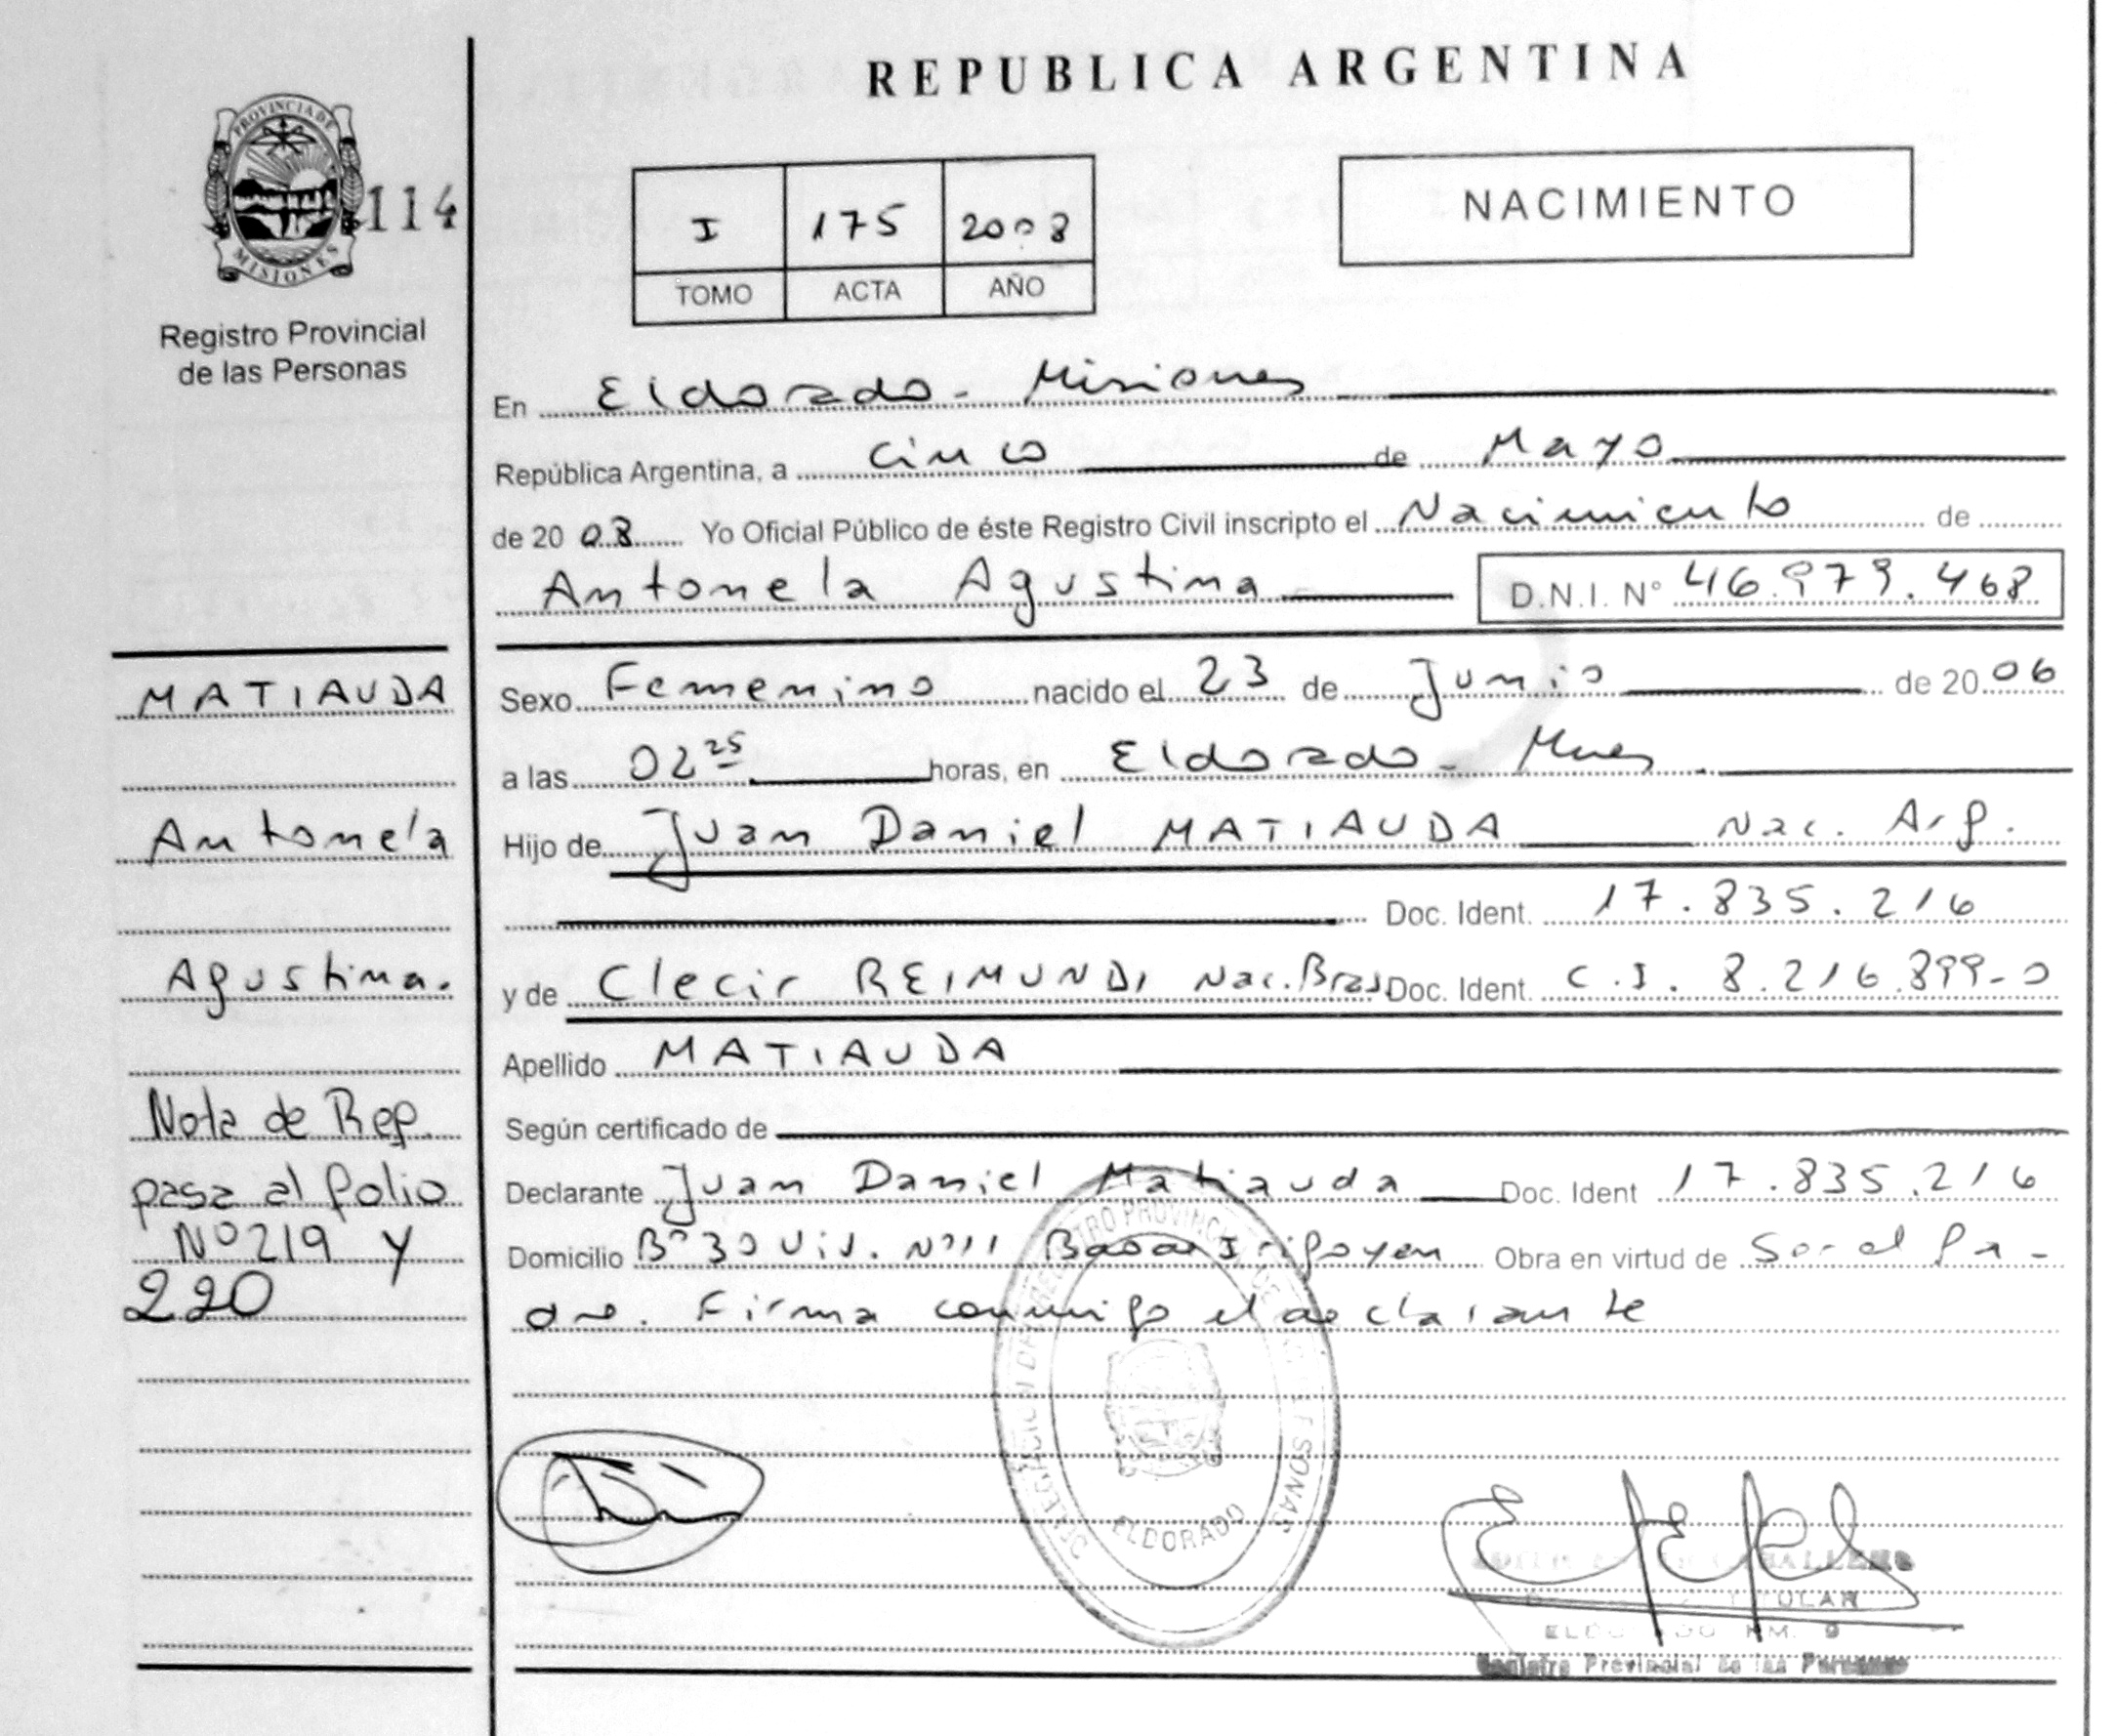 REPUBLICA ARGENTINA
PROVINCIA DE
MISIONES
114
Registro Provincial
de las Personas
I 175 2008
TOMO ACTA AÑO
NACIMIENTO
En Eldorado - Misiones
República Argentina, a cinco de Mayo
de 20 08 Yo Oficial Público de éste Registro Civil inscripto el Nacimiento de
Antonela Agustina D.N.I. Nº 46.979.468
MATIAUDA
Antonela
Agustina.
Nota de Rep.
pasa al folio
Nº 219 y
220
Sexo Femenino nacido el 23 de Junio de 20 06
a las 02 25 horas, en Eldorado - Mnes
Hijo de Juan Daniel MATIAUDA Nac. Arg.
Doc. Ident. 17.835.216
y de Clecir REIMUNDI Nac. Bras Doc. Ident. C.I. 8.216.899-0
Apellido MATIAUDA
Según certificado de
Declarante Juan Daniel Matiauda Doc. Ident 17.835.216
Domicilio Bº 30 Viv. Nº 11 Irigoyen Obra en virtud de Ser el Pa-
dre. Firma conmigo el declarante
ELDORADO
CABALLERO
TITULAR
ELDORADO KM. 9
Registro Provincial de las Personas